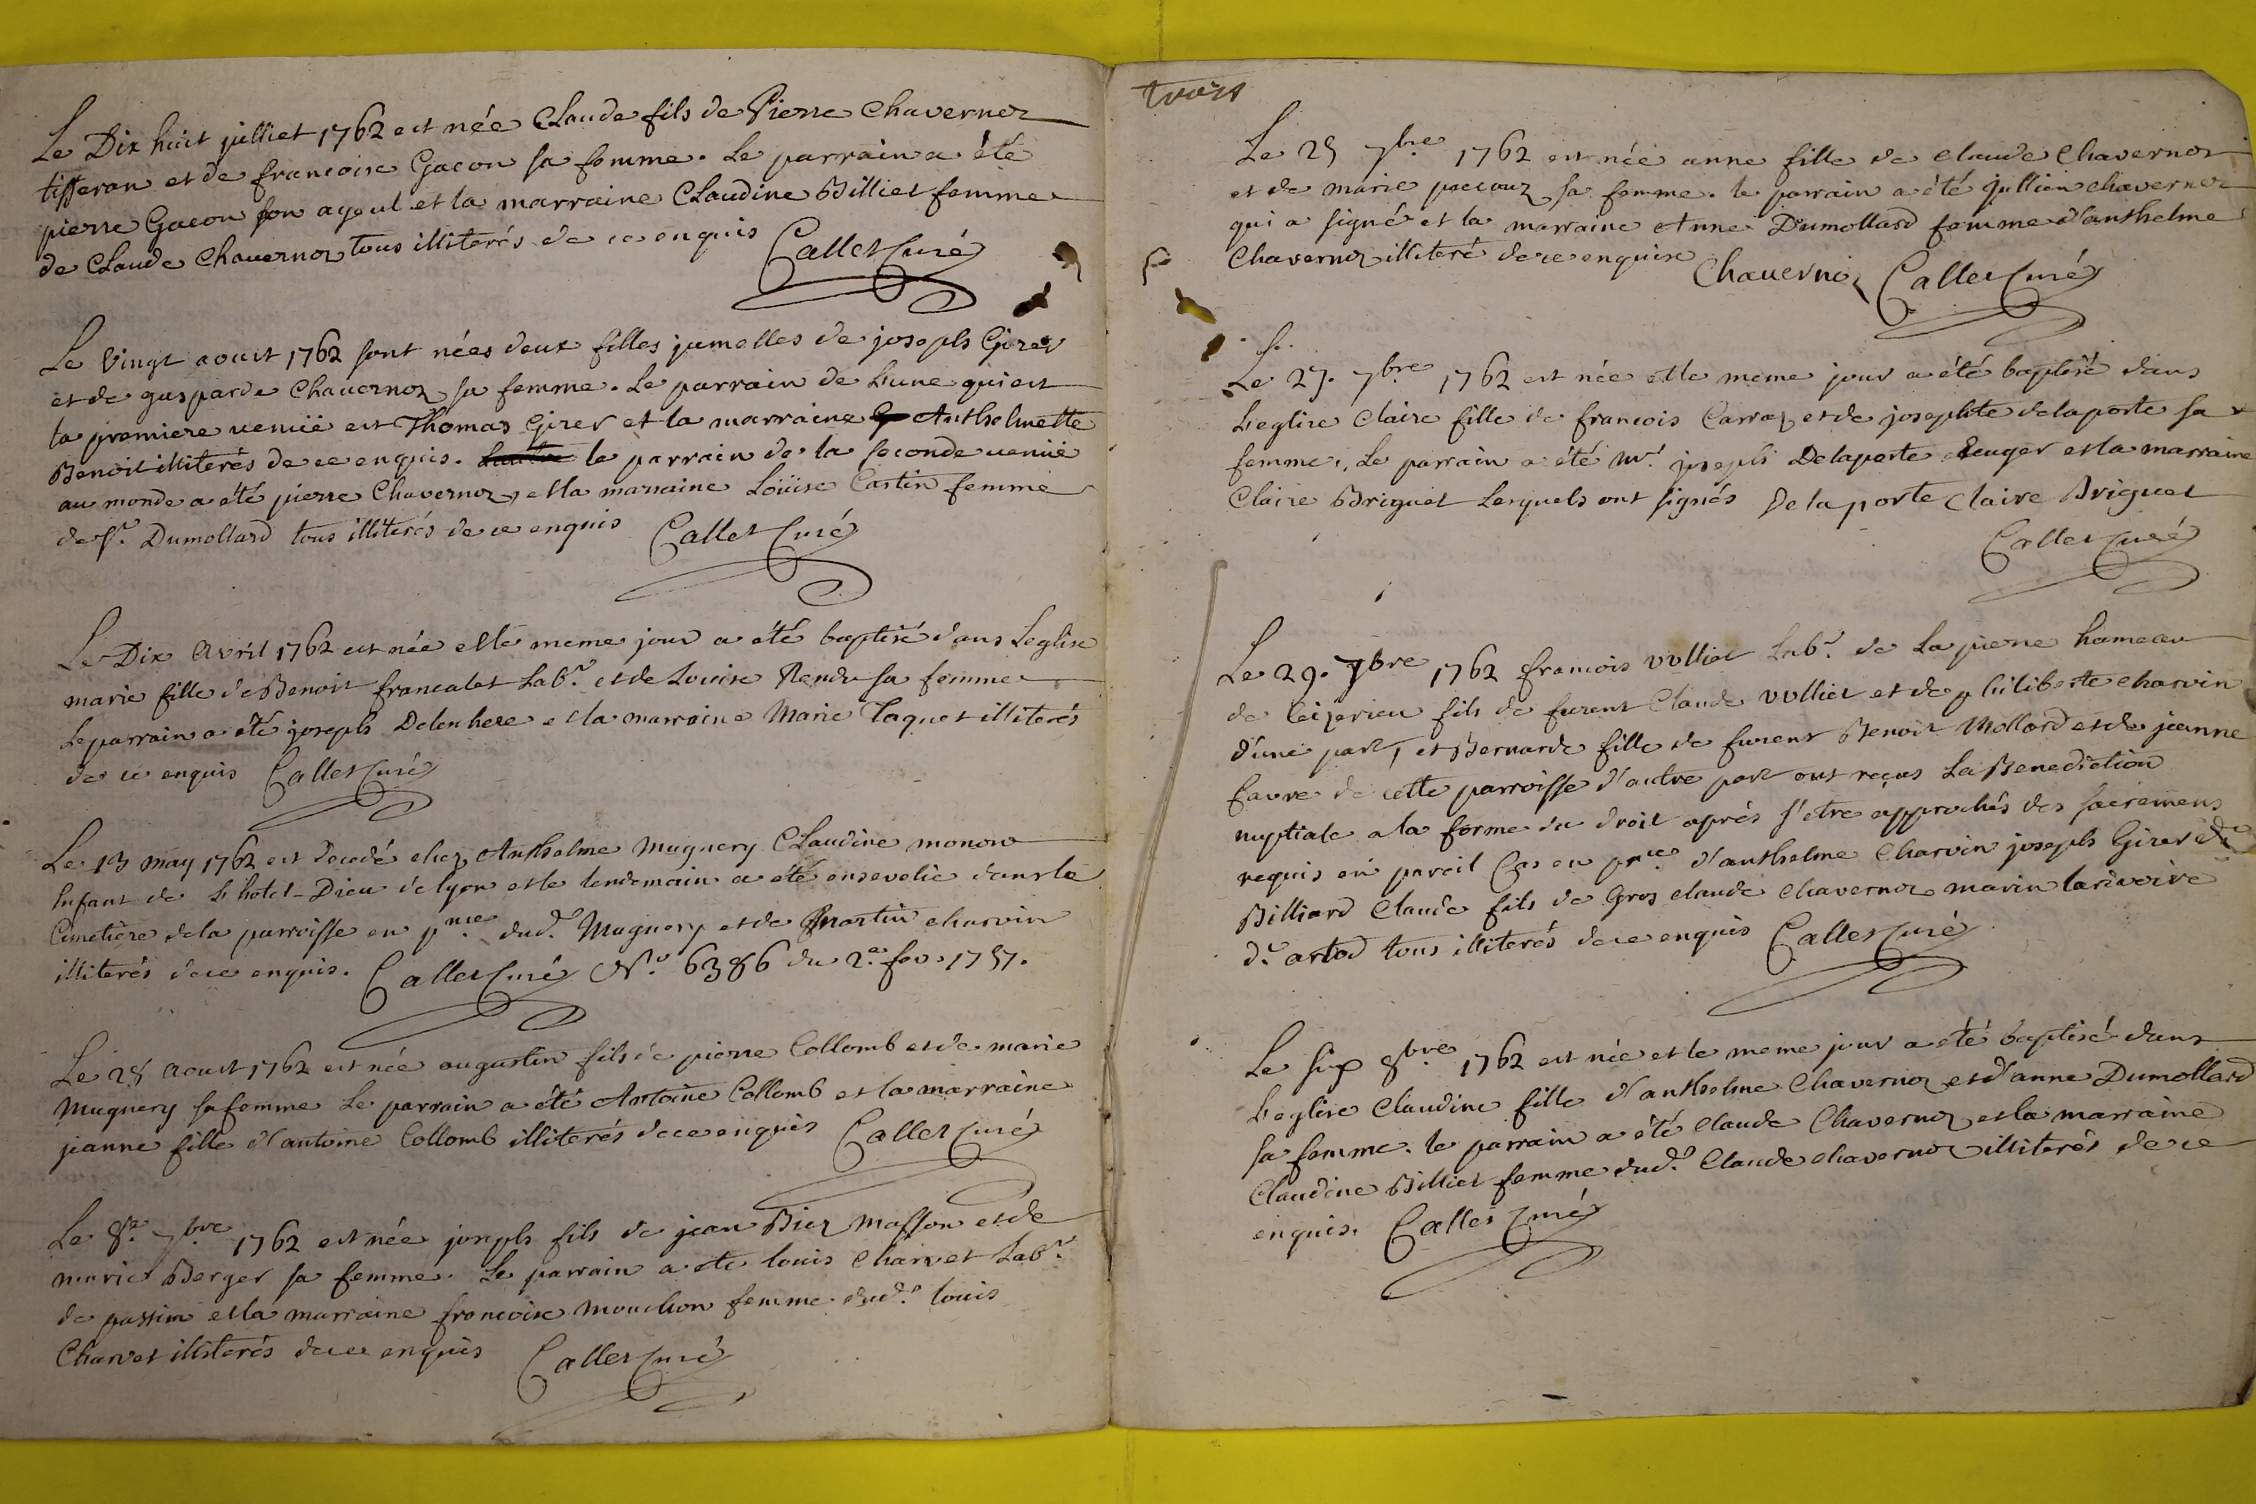 Le Dix huit julliet 1762 est née Claude fils de Pierre Chavernoz
tisseran et de francoise Gacon sa femme. Le parrain a été
pierre Gacon son ayeul et la marraine Claudine Billiet femme
de Claude Chavernoz tous illiterés de ce enquis Callet Curé
Le Vingt aoust 1762 sont nées deux filles jumelles de joseph Girer
et de gasparde Chavernoz sa femme. Le parrain de L'une qui est
la premiere venüe est Thomas Girer et la marraine Anthelmette
Benoit illiterés de ce enquis. le parrain de la seconde venüe
au monde a été pierre Chavernoz, et la marraine Loüise Castin femme
de Sr. Dumollard tous illiterés de ce enquis Callet Curé
Le Dix Avril 1762 est née et le meme jour a été baptisé dans L'eglise
marie fille de Benoit francalet Labr. et de Louise Rendu sa femme
Le parrain a été joseph Delenhere et la marraine Marie Taquet illiterés
de ce enquis Callet Curé
Le 13 may 1762 est decedé chez Anthelme Mugnery Claudine monon
Enfant de L'hotel-Dieu de lyon et le lendemain a été ensevelie dans le
Cimetiere de la parroisse en pnce dud. Mugnery et de Martin charvin
illiterés de ce enquis. Callet Curé No. 6386 du 2e fev. 1757.
Le 25 Aoust 1762 est née augustin fils de pierre Collomb et de marie
Mugnery sa femme Le parrain a été Antoine Collomb et la marraine
jeanne fille d'antoine Collomb illiterés de ce enquis Callet Curé
Le 8e 7bre 1762 est née joseph fils de jean Biez Masson et de
marie Berger sa femme. Le parrain a ete louis Charvet Labr.
de passin et la marraine francoise Mouchon femme dud. louis
Charvet illiterés de ce enquis Callet Curé
trois
Le 25 7bre 1762 est née anne fille de claude Chavernoz
et de marie pacouz sa femme. le parrain a été jullien chavernoz
qui a signé et la marraine Anne Dumollard femme d'anthelme
Chavernoz illiteré de ce enquise Chavernoz Callet Curé
Le 27. 7bre 1762 est née et le meme jour a été baptisé dans
L'eglise Claire fille de francois Carraz et de josephte delaporte sa
femme. Le parrain a été Mr. joseph Delaporte et la marraine
Claire Briguet Lesquels ont signés De la porte Claire Briguet
Callet Curé
Le 29. 7bre 1762 francois vulliet Labr. de La pierre hameau
de Ceizerieu fils de furent Claude vulliet et de philiberte charvin
d'une part, et Bernarde fille de furent Benoit Mollard et de jeanne
favre de cette parroisse d'autre part ont reçus La Benediction
nuptiale a la forme du droit aprés s'etre approchés des sacremens
requis en pareil Cas en pnce d'anthelme Charvin joseph Girer
Billiard Claude fils de Gros claude Chavernoz marin larivoire
d. artod tous illiterés de ce enquis Callet Curé
Le six 8bre 1762 est née et le meme jour a été baptisé dans
L'eglise Claudine fille d'anthelme Chavernoz et d'anne Dumollard
sa femme. le parrain a été Claude Chavernoz et la marraine
Claudine Billiet femme dud. Claude chavernoz illiterés de ce
enquis. Callet Curé